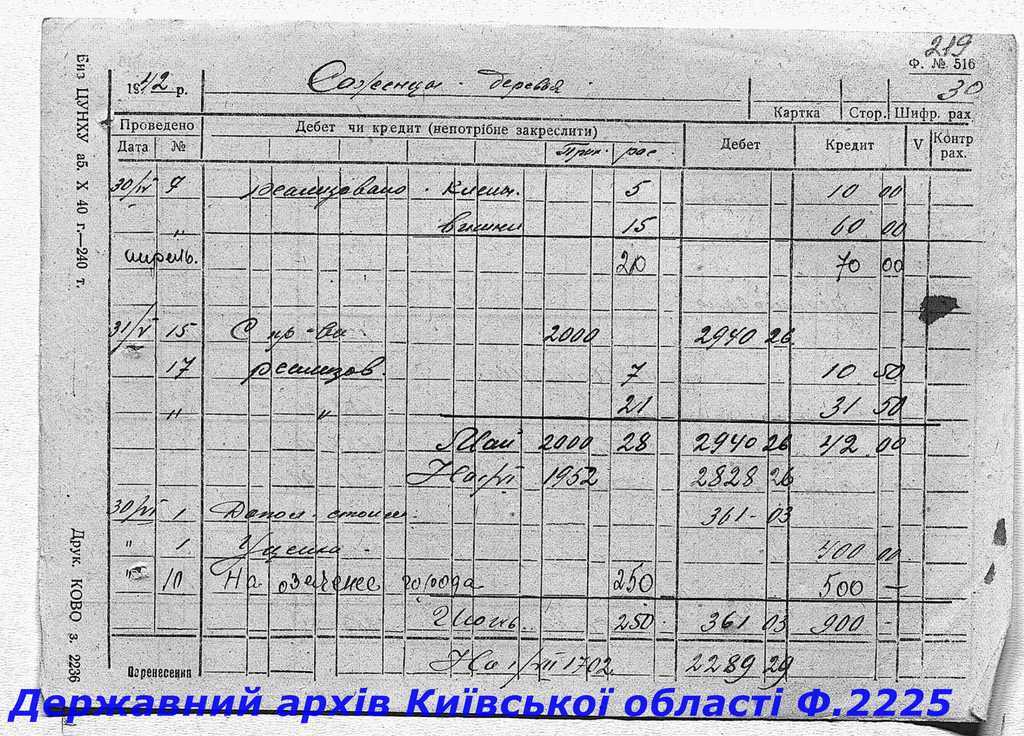 219
Ф. № 516
30
1942 р.
Саженцы - деревья
Картка Стор. Шифр. рах.
Проведено Дебет чи кредит (непотрібне закреслити) Дебет Кредит V Контр рах.
Дата № Прих. рас.
30/IV 7 реализовано клены. 5 10 00
" вишни 15 60 00
апрель. 20 70 00
31/V 15 С пр-ва 2000 2940 26
17 реализов. 7 10 50
" " 21 31 50
Май 2000 28 2940 26 42 00
На 1952 2828 26
30/VI 1 Допол. стоим. 361-03
" 1 Уценка 400 00
" 10 На озеленение города 250 500 —
Июнь. 250 361 03 900 —
На 1/VII 1702 2289 29
Перенесення
Биз ЦУНХУ аб. X 40 г.—240 т.
Друк. КОВО з. 2236
Державний архів Київської області Ф.2225